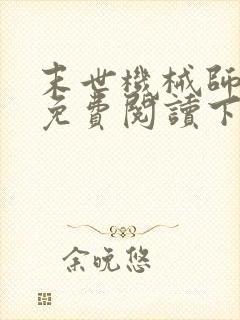 末世機械師
免費閱讀下
余晚悠